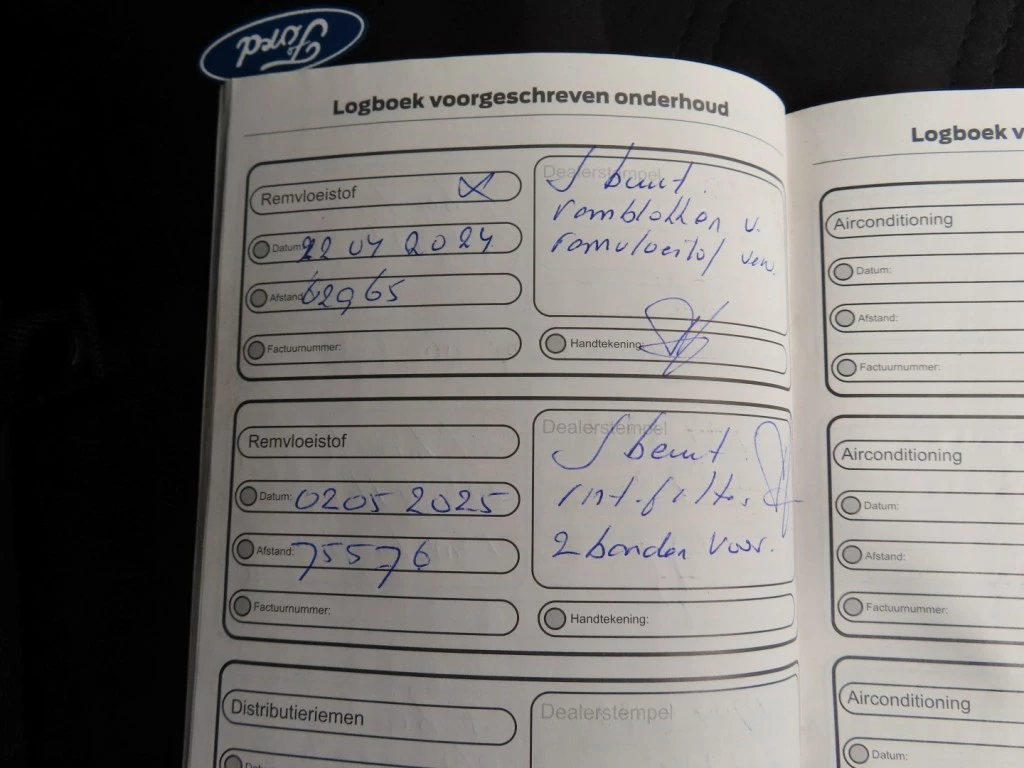 Ford
Logboek voorgeschreven onderhoud
Remvloeistof X
Datum: 22 04 2024
Afstand: 62965
Factuurnummer:
Dealerstempel
beurt.
remblokken v.
remvloeistof verv.
Handtekening:
Remvloeistof
Datum: 02 05 2025
Afstand: 75576
Factuurnummer:
Dealerstempel
beurt
int. filter,
2 banden voor.
Handtekening:
Distributieriemen
Dealerstempel
Logboek v
Airconditioning
Datum:
Afstand:
Factuurnummer:
Airconditioning
Datum:
Afstand:
Factuurnummer:
Airconditioning
Datum: